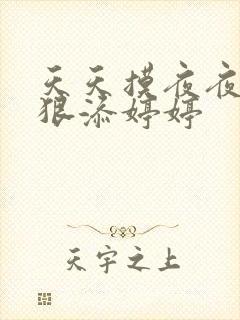 天天摸夜夜
狠添婷婷
天宇之上